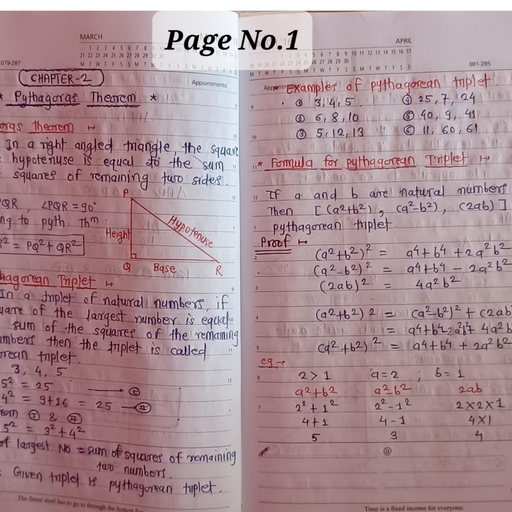 Page No.1
MARCH
079-287
Appointments
CHAPTER-2
* Pythagoras Theorem *
oras theorem
In a right angled triangle, the square
hypotenuse is equal to the sum
squares of remaining two sides.
PQR, ∠PQR = 90°
ng to pyth. Thm
R² = PQ² + QR²
P
Height
Hypotenuse
Q Base R
hagorean Triplet
In a triplet of natural numbers, if
uare of the largest number is equal
sum of the squares of the remaining
mbers then the triplet is called
orean triplet.
3, 4, 5
5² = 25 ①
4² = 9+16 = 25 ②
rom ① & ②
5² = 3²+4²
of largest No = sum of squares of remaining
two numbers.
Given triplet is pythagorean triplet.
The finest steel has to go through the hottest
APRIL
081-285
* Examples of pythagorean triplet
① 3,4,5 ④ 25, 7, 24
② 6, 8, 10 ⑤ 40, 9, 41
③ 5, 12, 13 ⑥ 11, 60, 61
* Formula for pythagorean Triplet
If a and b are natural numbers
Then [(a²+b²), (a²-b²), (2ab)]
pythagorean triplet.
Proof
(a²+b²)² = a4+b4+2a²b²
(a²-b²)² = a4+b4-2a²b²
(2ab)² = 4a²b²
(a²+b²)2 = (a²-b²)²+(2ab
= a4+b4-2a²b² 4a²b²
(a²+b²)² = a4+b4+2a²b²
eg →
2>1 a=2 ; b=1
a²+b² a²-b² 2ab
2²+1² 2²-1² 2×2×1
4+1 4-1 4×1
5 3 4
Time is a fixed income for everyone